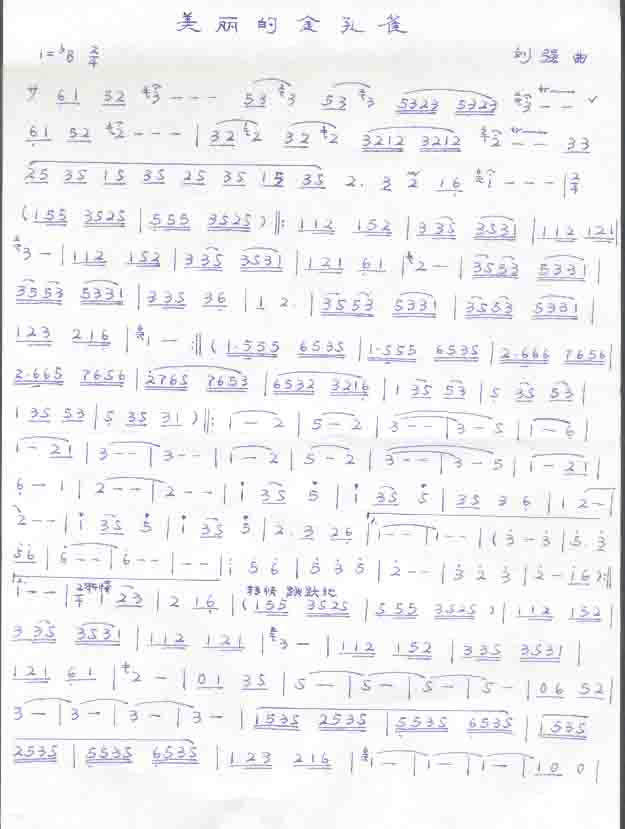 美丽的金孔雀
1=♭B 2/4 刘强 曲
サ 61 32 3 - - - 53 3 53 3 5323 5323 3 - -
61 52 2 - - - | 32 2 32 2 3212 3212 2 - - 33
25 35 15 35 25 35 15 35 2. 3 2 16 1 - - - | 2/4
(155 3525 | 555 3525) ‖: 112 152 | 335 3531 | 112 121 |
3 - | 112 152 | 335 3531 | 121 61 | 2 - | 3553 5331 |
3553 5331 | 335 36 | 1 2. | 3553 5331 | 3553 5331 |
123 216 | 1 - :‖ (1.555 6535 | 1.555 6535 | 2.666 7656 |
2.665 7656 | 2765 7653 | 6532 3216 | 1 35 53 | 5 35 53 |
1 35 53 | 5 35 31) ‖: 1 - 2 | 5 - 2 | 3 - - | 3 - 5 | 1 - 6 |
1 - 21 | 3 - - | 3 - - | 1 - 2 | 5 - 2 | 3 - - | 3 - 5 | 1 - 21 |
6 - 1 | 2 - - | 2 - - | i 35 5 | i 35 5 | 35 3 6 | 1 2 - |
2 - - | i 35 5 | i 35 5 | 2. 3 26 | 1. 1 - - | 1 - - | (3 - 3 | 5. 3
56 | 6 - - | 6 - - | - - | i 5 6 | 5 3 5 | 2 - - | 3 2 3 | 2 - 16) :‖
2. 1 - - | 2/4 转慢 23 | 2 16 | (155 3525 | 555 3525) | 112 152 |
3 35 3531 | 112 121 | 3 - | 112 152 | 335 3531 |
121 61 | 2 - | 01 35 | 5 - | 5 - | 5 - | 5 - | 06 52 |
3 - | 3 - | 3 - | 3 - | 1535 2535 | 5535 6535 | 1535
2535 | 5535 6535 | 123 216 | 1 - | 1 - | 1 - | 10 0 |